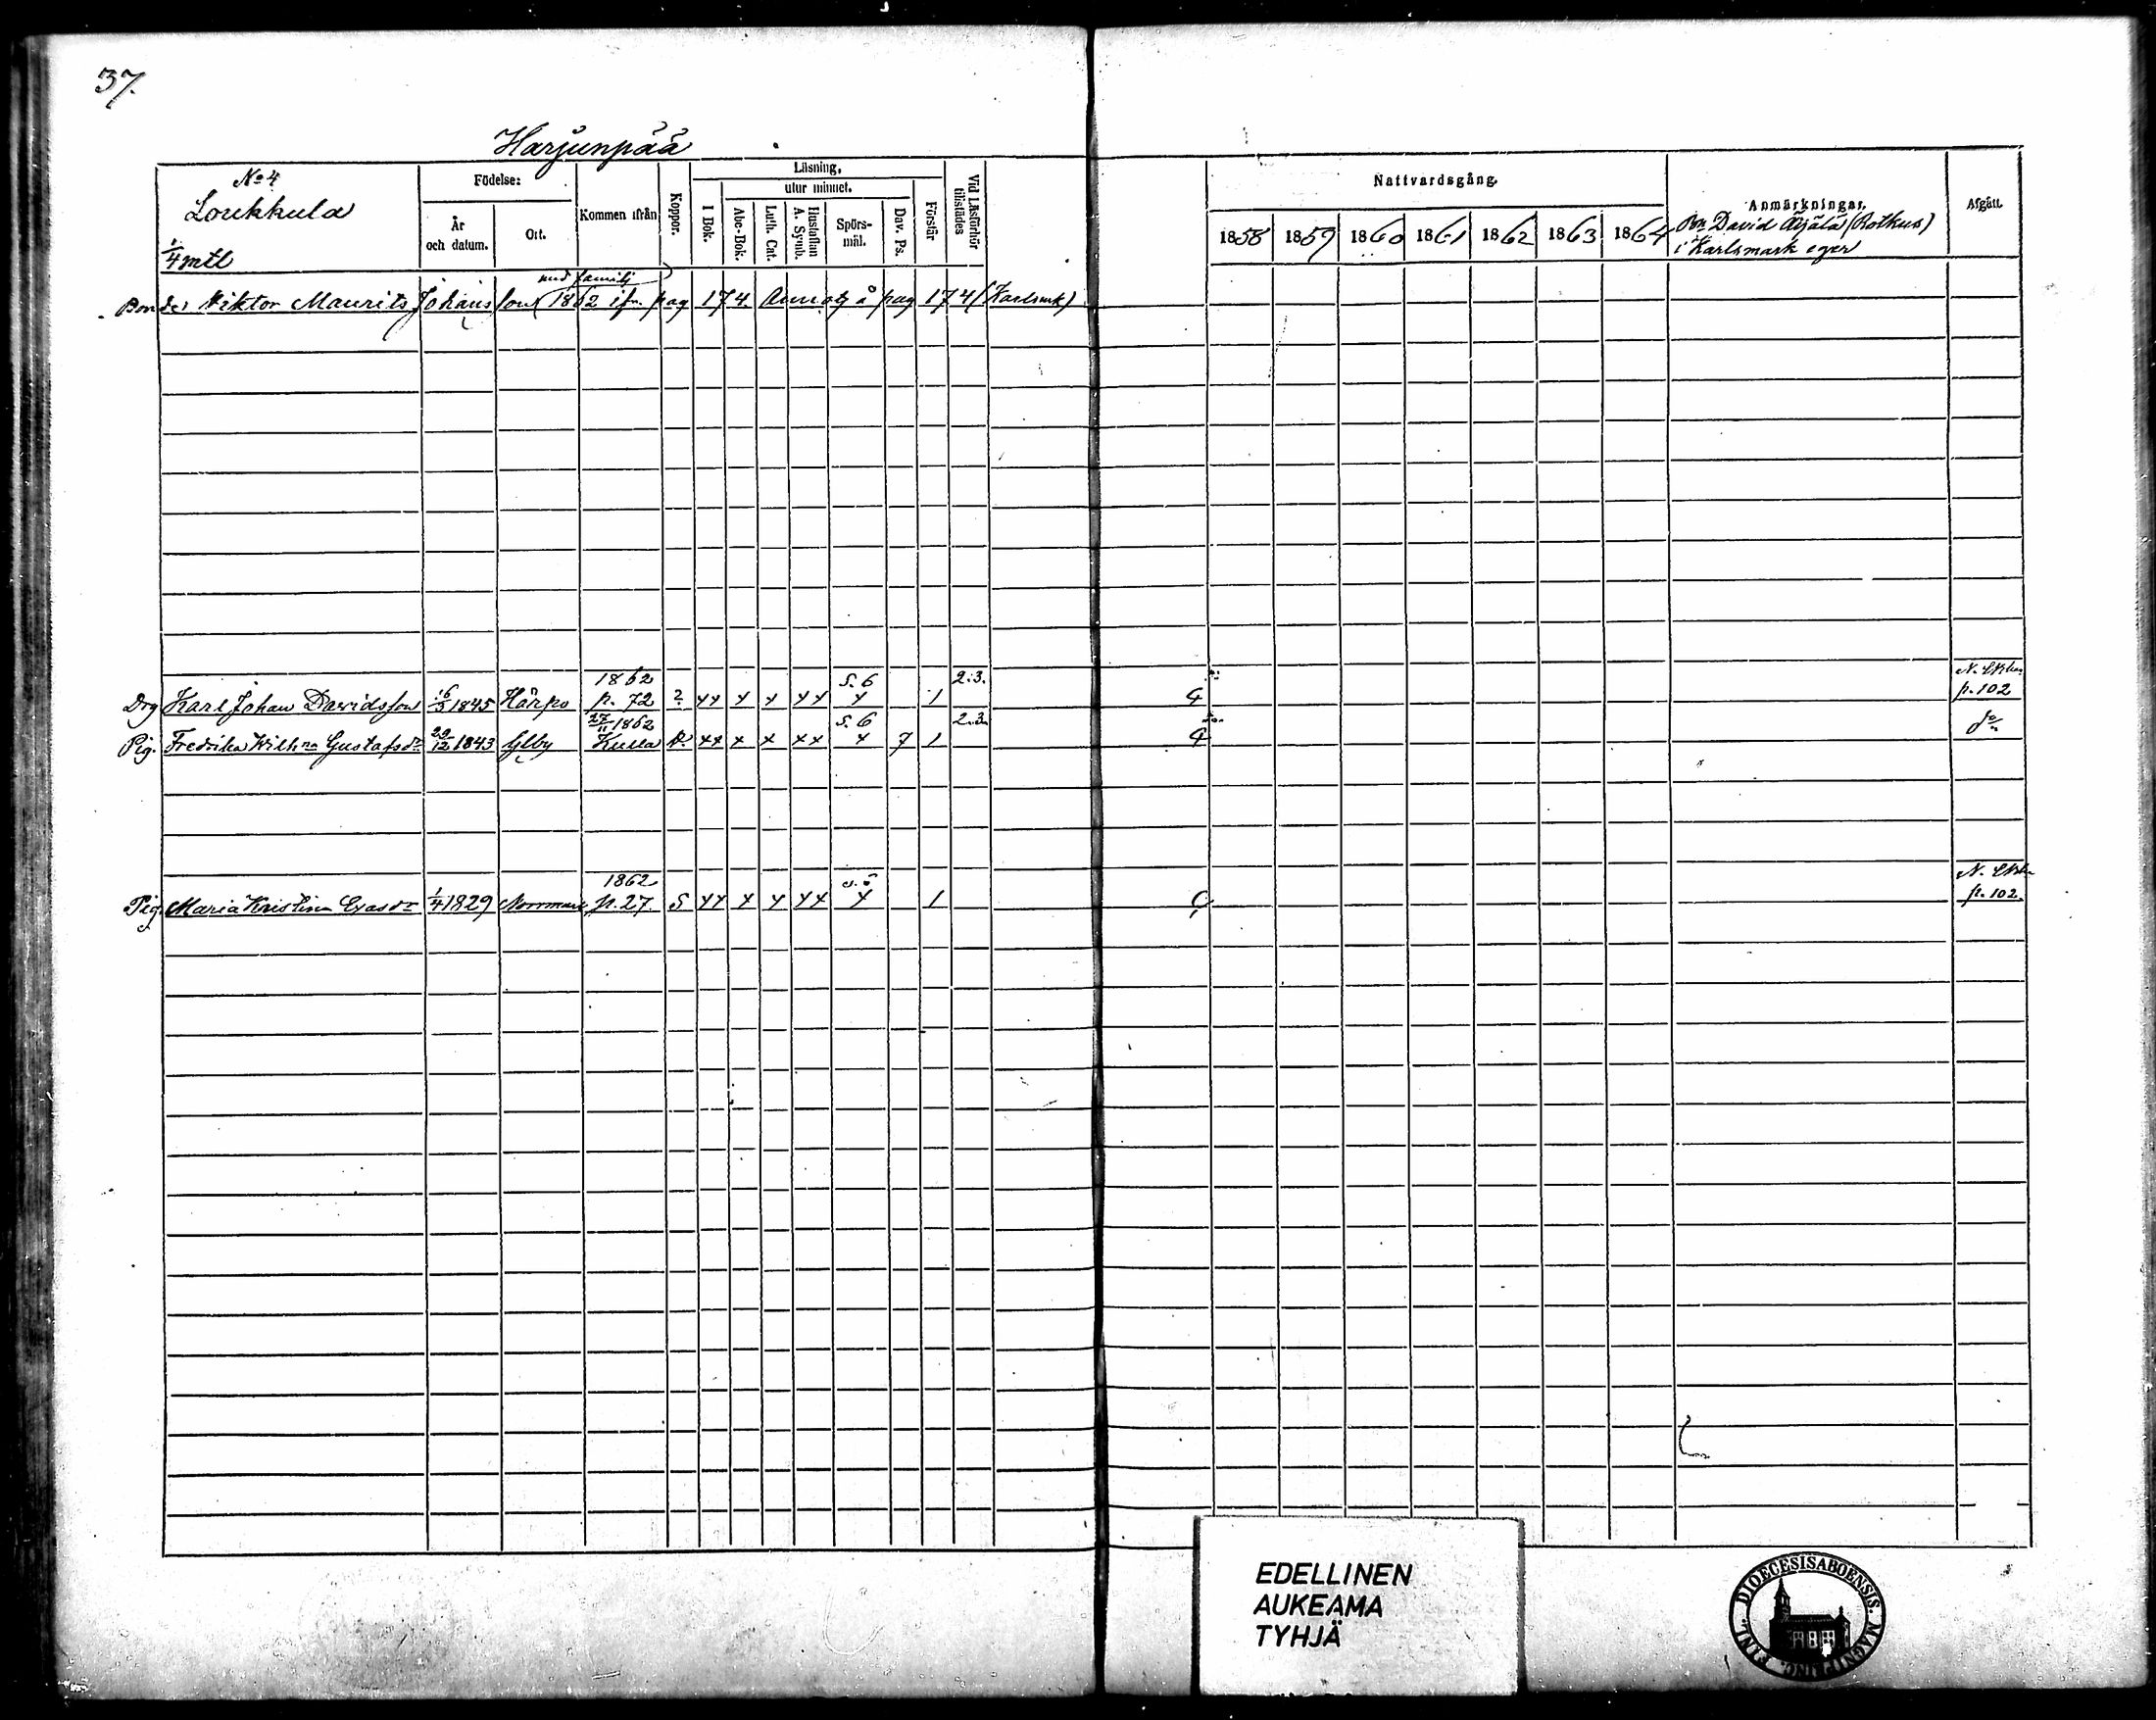 37.
Harjunpää
No 4
Loukkula
1/4 mtl
Födelse:
År och datum.
Ort.
Kommen ifrån
Koppor.
Läsning,
I Bok.
utur minnet.
Abc-Bok.
Luth. Cat.
Hustaflan A. Symb.
Spörs-mål.
Dav. Ps.
Förstår
Vid Läsförhör tillstädes
Nattvardsgång.
1858 1859 1860 1861 1862 1863 1864
Anmärkningar.
Bon. David Äijälä (Rotkus)
i Karlsmark eger
Afgått.
med familj
Bonden Viktor Maurits Johansson 1862 ifr. pag 174. Annot. å pag 174 (Karlsmk)
1862 S. 6 2.3. N.
Drg Karl Johan Davidsson 16/5 1845 Härpo p. 72 ? xx x x xx x 1 p. 102
27/11 1862 S. 6 2.3.
Pig. Fredrika Wilhna Gustafsdr 29/12 1843 Ylby Kulla xx x x xx x 7 1 do
1862 N.
Pig. Maria Kristina 1/4 1829 Norrmark p. 27. S xx x x xx x 1 p. 102.
EDELLINEN
AUKEAMA
TYHJÄ
DIOECESIS ABOENSIS. MAGNI PRINC. FINL.